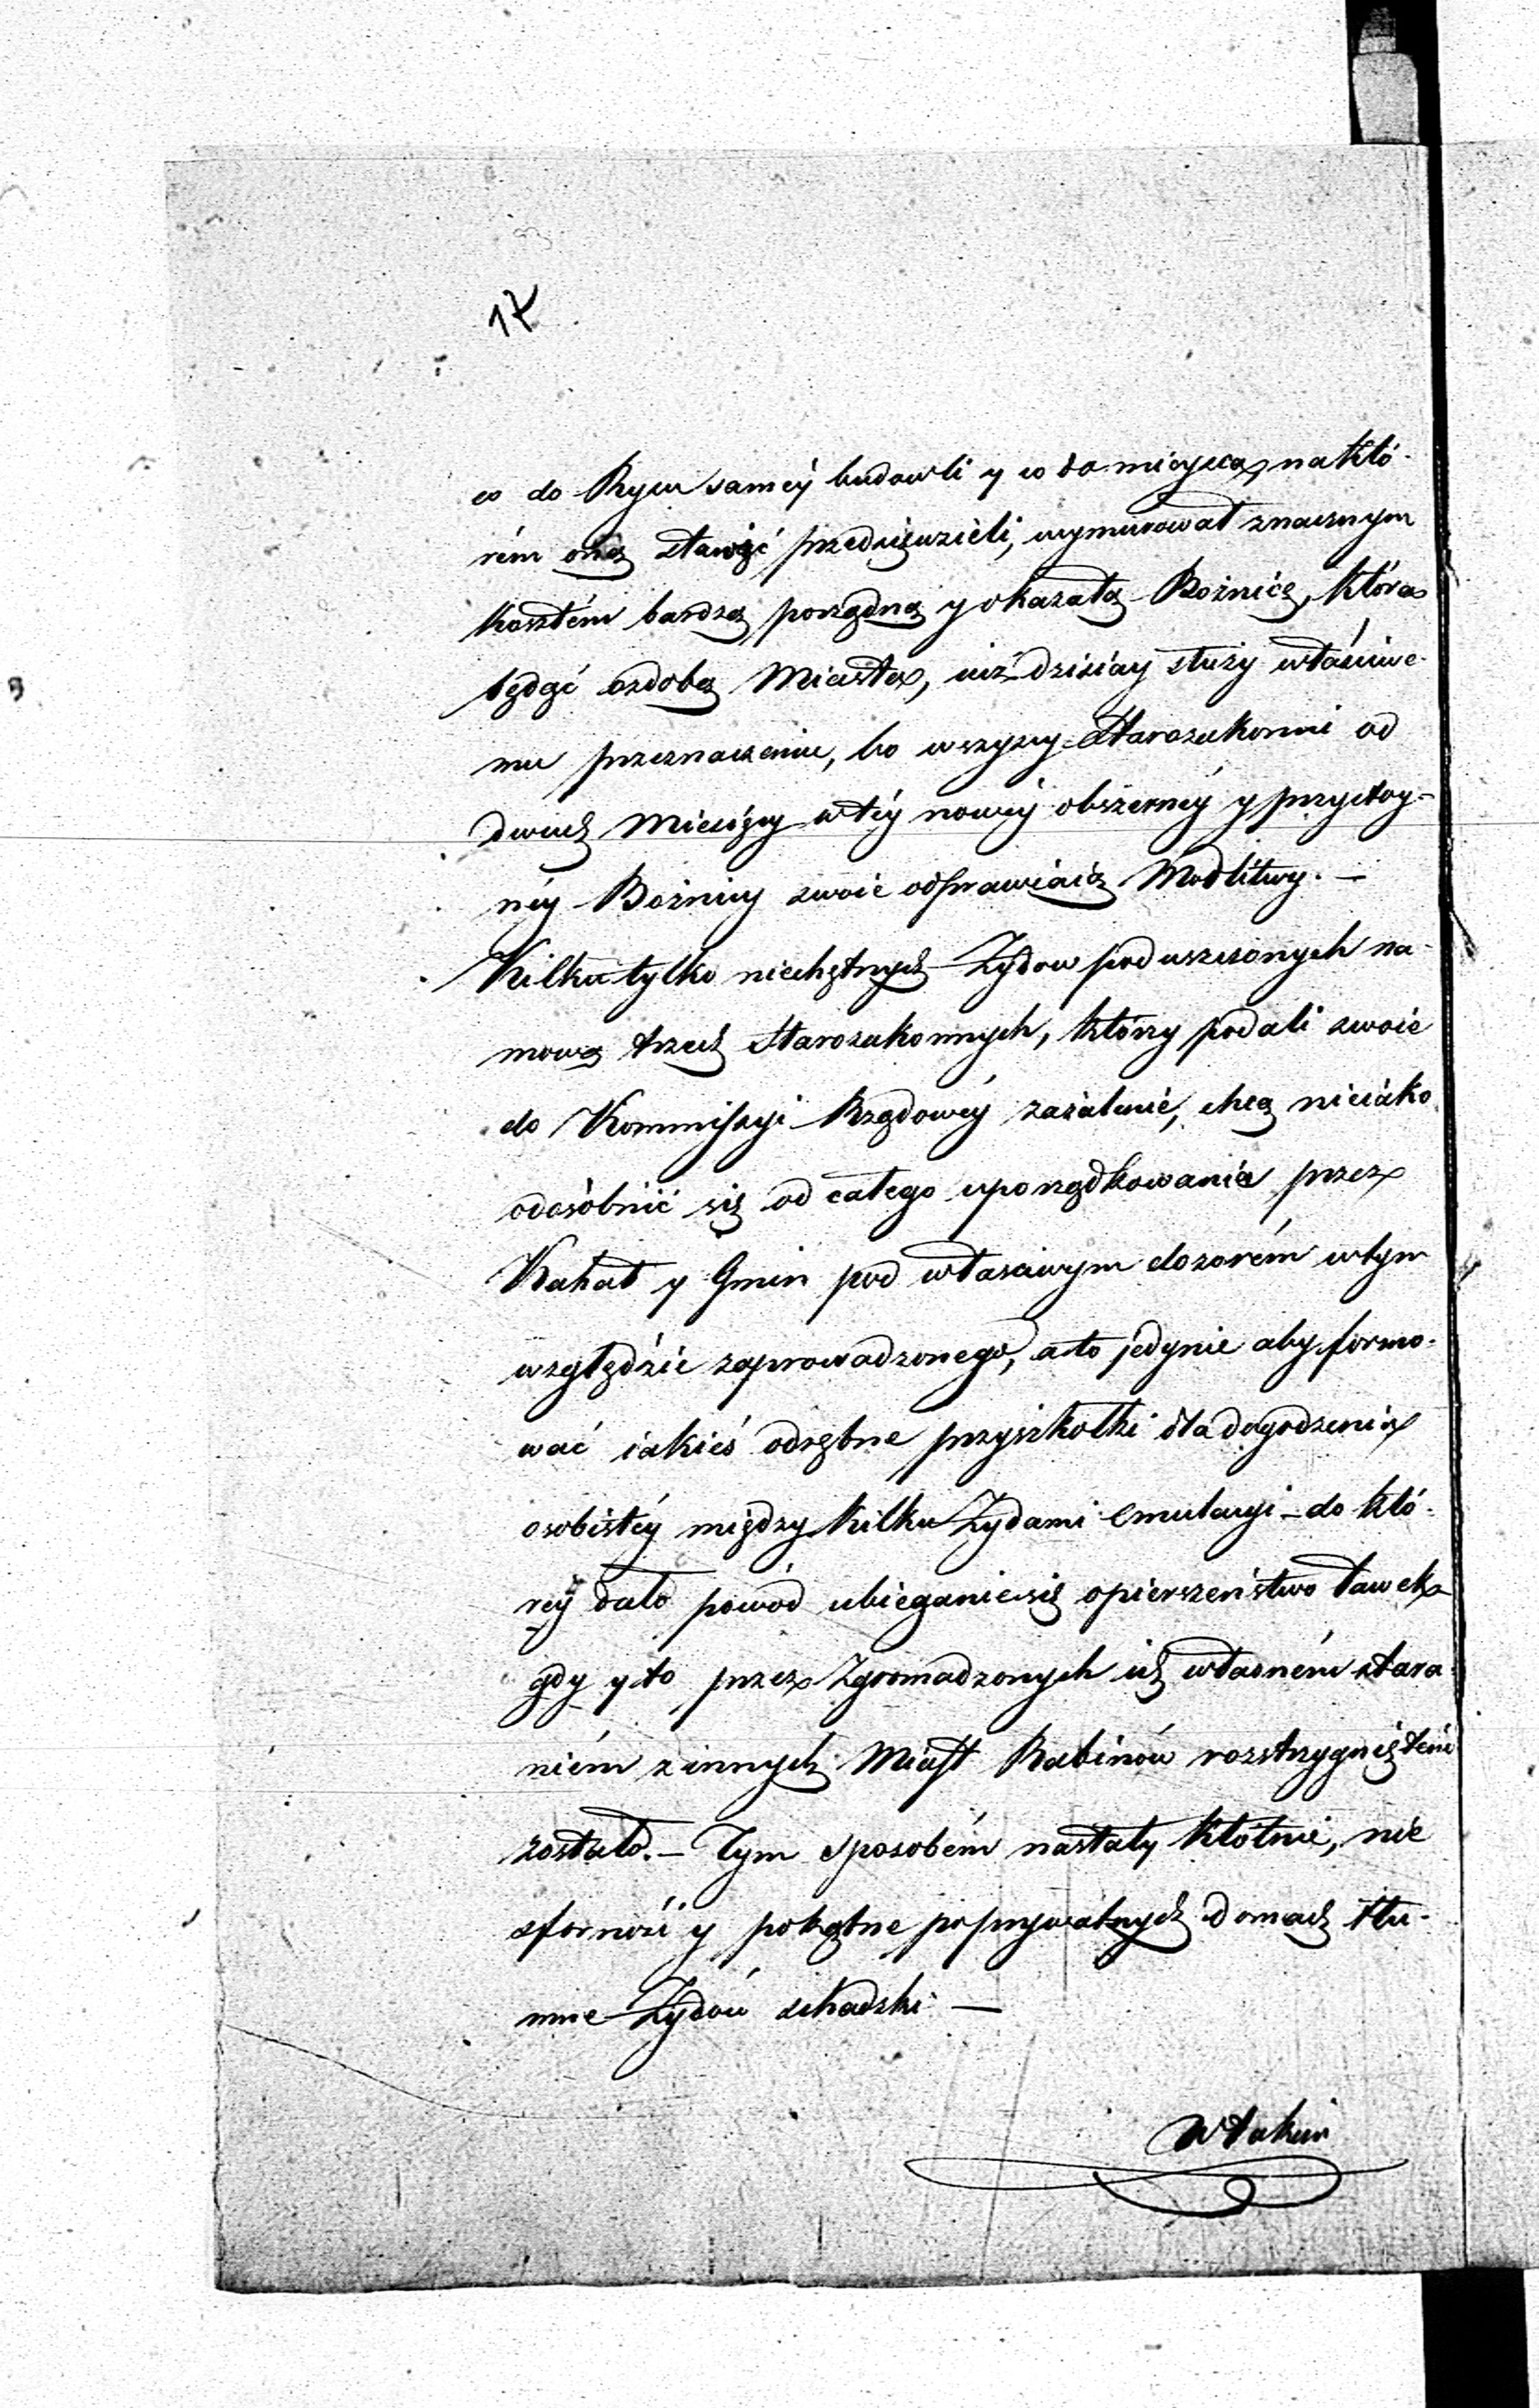 17
co do Rysu samey budowli y co do mieysca, na któ-
rém oną stawić przedsięwzieli, wymurował znacznym
kosztém bardzo porządną y okazałą Bożnicę, która
będąć ozdobą Miasta, iuż dzisiay służy właściwe-
mu przeznaczeniu, bo wszyscy Starozakonni od
dwuch Miesięcy w téy nowéy obszernéy y przystoy-
néy Bożnicy swoie odprawiaią Modlitwy. —
Kilku tylko niechętnych Żydow poduszczonych na-
mową trzech Starozakonnych, którzy podali swoie
do Kommissyi Rządowéy zażalenié, chcą nieiako
odosóbnić się od całego uporządkowania przez
Kahał y Gmin pod własciwym dozorém w tym
względzie zaprowadzonego, a to jedynie aby formo-
wać iakieś odrębne przyszkołki dla dogodzenia
osobistéy między kilku Żydami emulacyi – do któ-
réy dało powód ubieganie się o pierszeństwo ławek
gdy y to przez zgromadzonych ich własném stara-
niém z innych Miast Rabinów rozstrzygniętém
zostało. – Tym sposobém nastały kłótnie, nie
sforność y pokątne po prywatnych domach tłu-
mne Żydów schadzki —
W takim